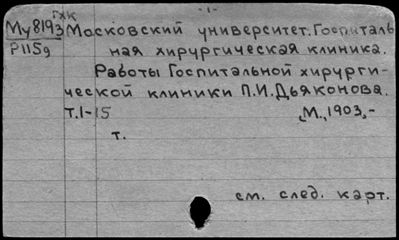 - 1 -
ГХК
Му8193 Московский университет. Госпиталь
Р115g ная хирургическая клиника.
Работы Госпитальной хирурги-
ческой клиники П.И.Дьяконова.
Т.1-15 М., 1903,-
т.
см. след. карт.